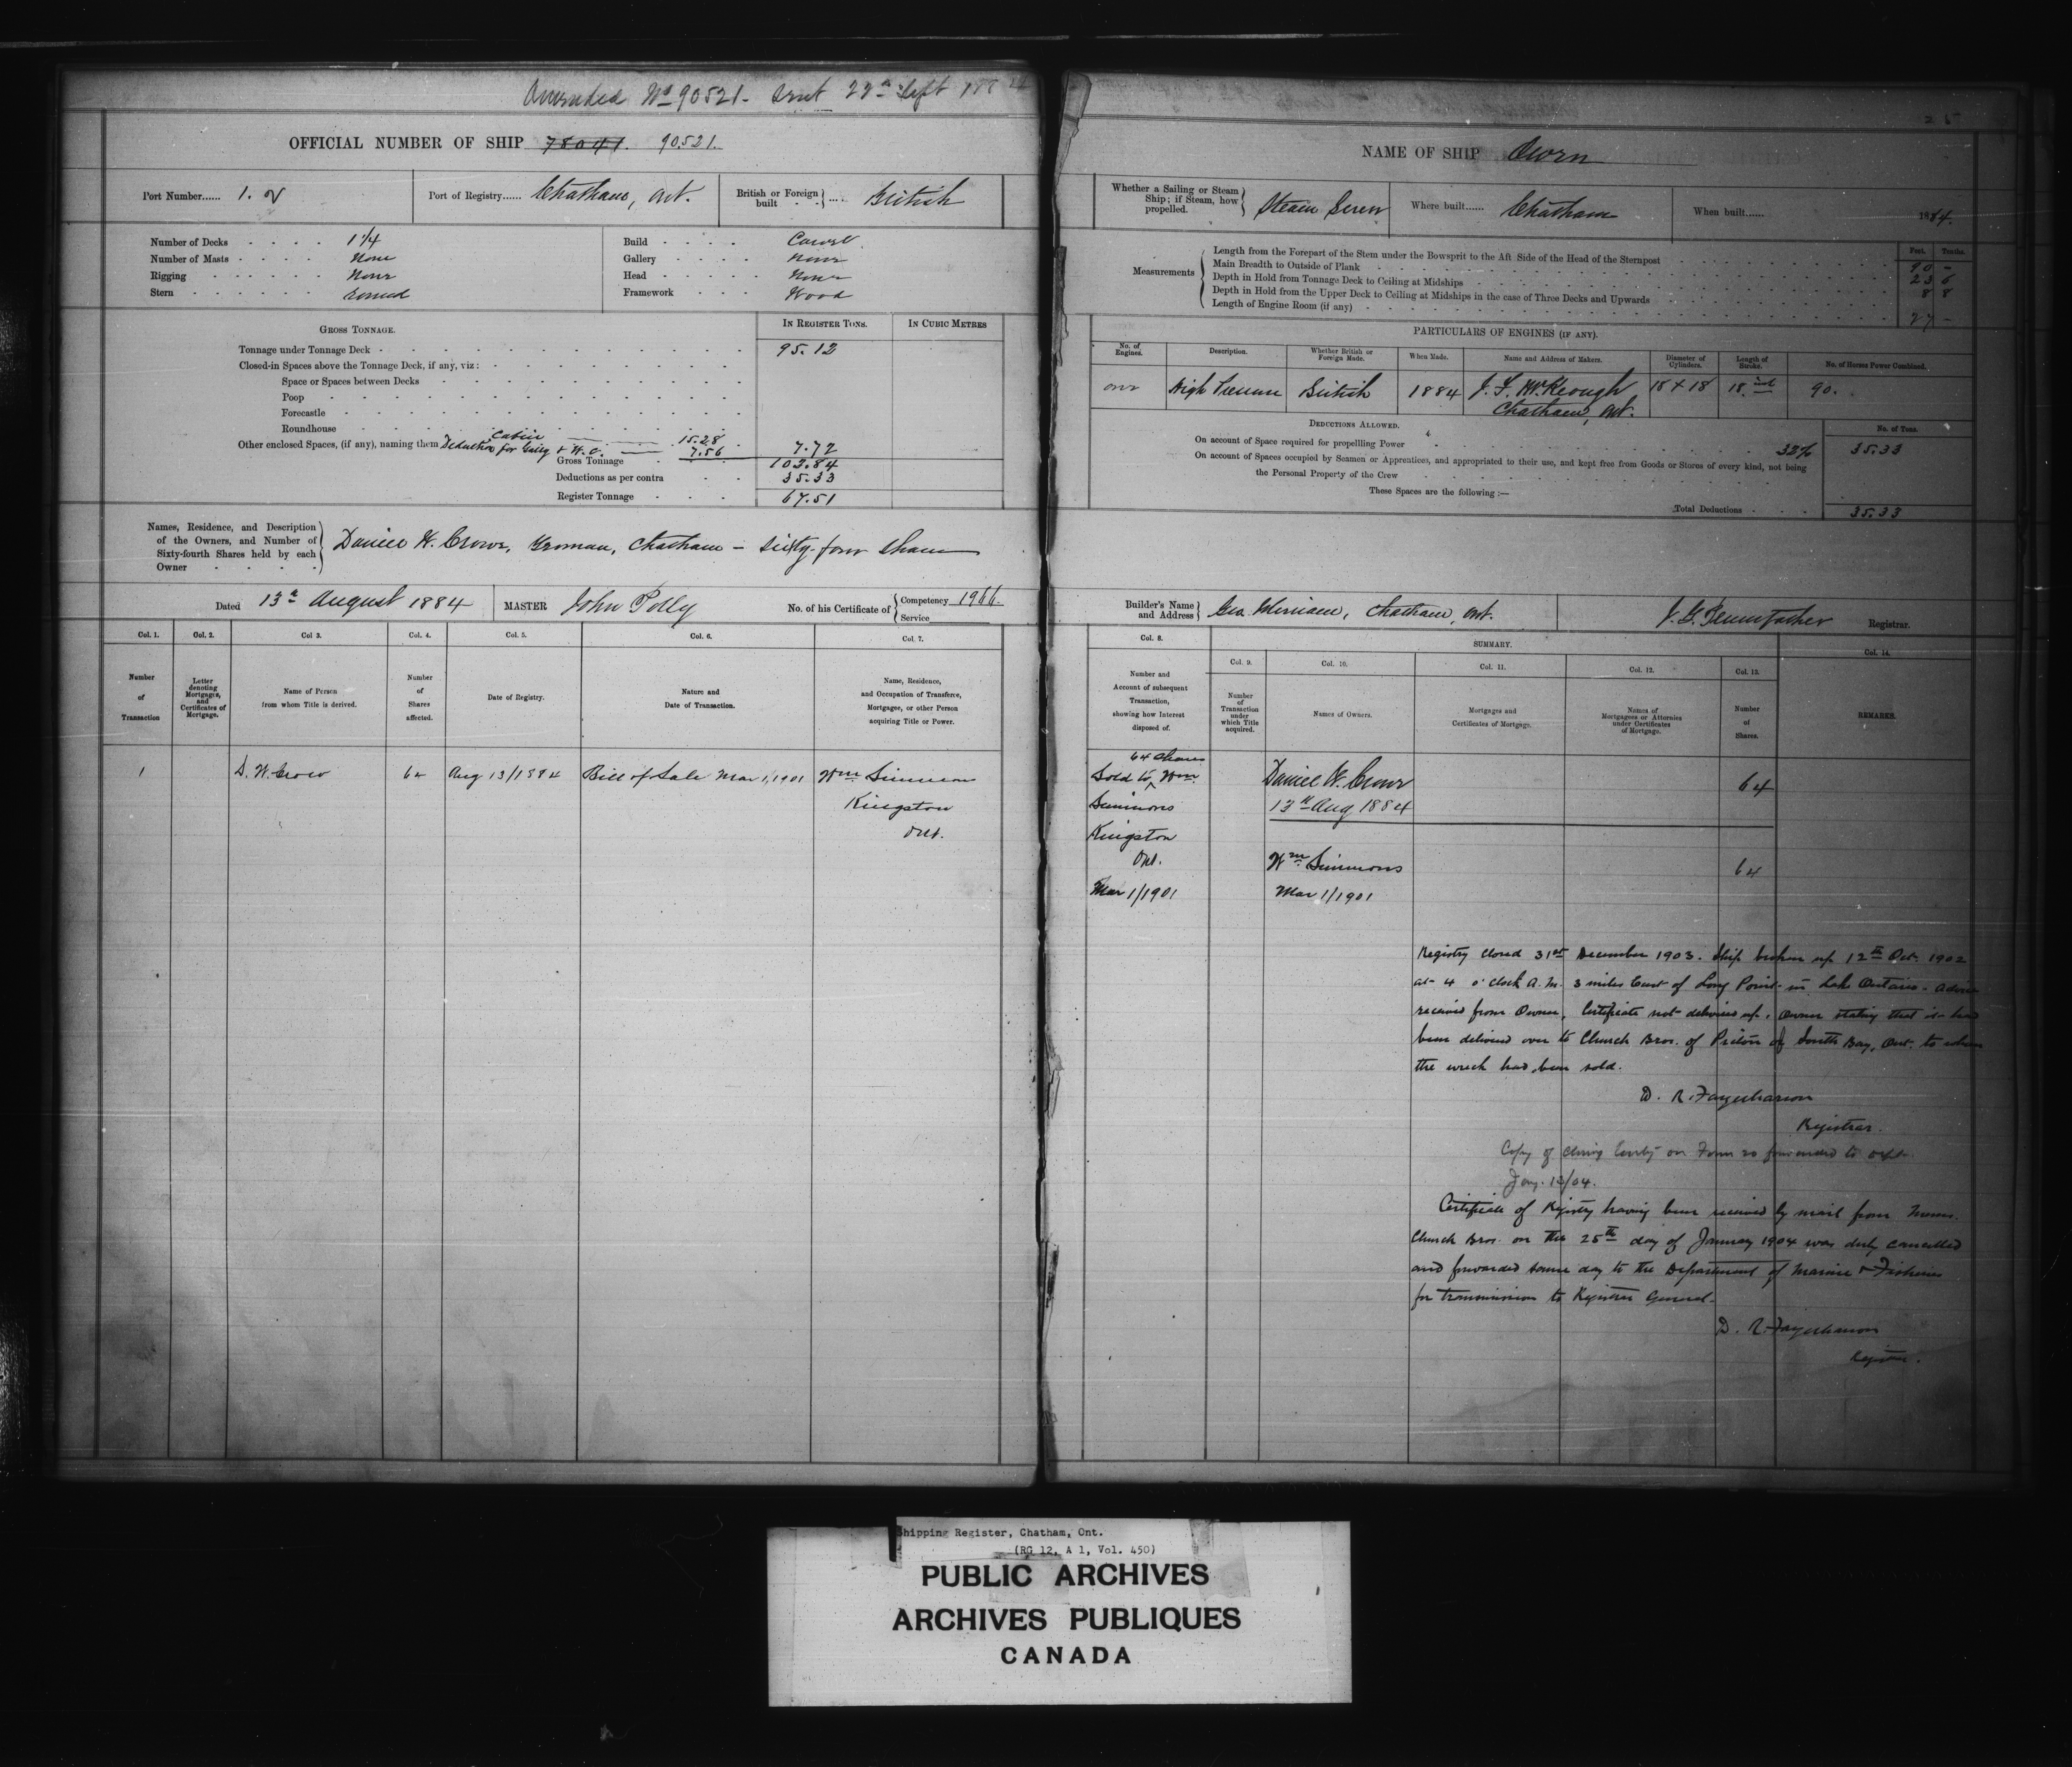 Amended No 90521 - Sent 22nd Sept
OFFICIAL NUMBER OF SHIP 78041. 90.521.
Port Number...... 1. of
Port of Registry...... Chatham, Ont.
British or Foreign built .... British
Number of Decks 1 1/4
Number of Masts None
Rigging None
Stern round
Build Carvel
Gallery none
Head None
Framework Wood
GROSS TONNAGE.
IN REGISTER TONS.
IN CUBIC METRES
Tonnage under Tonnage Deck 95.12
Closed-in Spaces above the Tonnage Deck, if any, viz:
Space or Spaces between Decks
Poop
Forecastle
Roundhouse
Other enclosed Spaces, (if any), naming them Cabin 15.28
Deduction for Galley & W.C. 7.56 7.72
Gross Tonnage 102.84
Deductions as per contra 35.33
Register Tonnage 67.51
Names, Residence, and Description
of the Owners, and Number of
Sixty-fourth Shares held by each
Owner
Daniel W. Crow, Yeoman, Chatham - Sixty-four Shares
Dated 13th August 1884
MASTER John Polly
No. of his Certificate of Competency 1966.
Service
Col. 1. Col. 2. Col. 3. Col. 4. Col. 5. Col. 6. Col. 7.
Number of Transaction
Letter denoting Mortgages, and Certificates of Mortgage.
Name of Person from whom Title is derived.
Number of Shares affected.
Date of Registry.
Nature and Date of Transaction.
Name, Residence, and Occupation of Transferee, Mortgagee, or other Person acquiring Title or Power.
1 D. W. Crow 64 Aug 13/1884 Bill of Sale Mar 1/1901 Wm Simmons
Kingston
Ont.
25
NAME OF SHIP Owen
Whether a Sailing or Steam Ship; if Steam, how propelled. Steam Screw
Where built...... Chatham
When built...... 1884.
Measurements
Feet. Tenths.
Length from the Forepart of the Stem under the Bowsprit to the Aft Side of the Head of the Sternpost 90 -
Main Breadth to Outside of Plank 23 6
Depth in Hold from Tonnage Deck to Ceiling at Midships 8 8
Depth in Hold from the Upper Deck to Ceiling at Midships in the case of Three Decks and Upwards
Length of Engine Room (if any) 27 -
PARTICULARS OF ENGINES (IF ANY).
No. of Engines.
Description.
Whether British or Foreign Made.
When Made.
Name and Address of Makers.
Diameter of Cylinders.
Length of Stroke.
No. of Horses Power Combined.
one High Pressure British 1884 J. F. McKeough 18 x 18 18 inch 90.
Chatham, Ont.
DEDUCTIONS ALLOWED.
No. of Tons.
On account of Space required for propelling Power 32% 35.33
On account of Spaces occupied by Seamen or Apprentices, and appropriated to their use, and kept free from Goods or Stores of every kind, not being
the Personal Property of the Crew
These Spaces are the following:—
Total Deductions 35.33
Builder's Name and Address Geo. , Chatham, Ont.
Registrar.
Col. 8.
SUMMARY.
Col. 9. Col. 10. Col. 11. Col. 12. Col. 13. Col. 14.
Number and Account of subsequent Transaction, showing how Interest disposed of.
Number of Transaction under which Title acquired.
Names of Owners.
Mortgages and Certificates of Mortgage.
Names of Mortgagees or Attornies under Certificates of Mortgage.
Number of Shares.
REMARKS.
64 shares
Sold to Wm
Simmons
Kingston
Ont.
Mar 1/1901
Daniel W. Crow 64
13th Aug 1884
Wm Simmons 64
Mar 1/1901
Registry closed 31st December 1903. Ship broken up 12th Oct. 1902
at 4 o'clock A.M. 3 miles East of Long Point in Lake Ontario. Advice
received from Owner. Certificate not delivered up, Owner stating that it had
been delivered over to Church Bros. of Picton of South Bay, Ont. to whom
the wreck had been sold.
D. R. Farquharson
Registrar.
Copy of closing on Form 20 forwarded to Dept.
Jany. 12/04.
Certificate of Registry having been received by mail from Messrs.
Church Bros. on the 25th day of January 1904 was duly cancelled
and forwarded same day to the Department of Marine & Fisheries
for transmission to Registrar General.
D. R. Farquharson
Registrar.
Shipping Register, Chatham, Ont.
(RG 12, A 1, Vol. 450)
PUBLIC ARCHIVES
ARCHIVES PUBLIQUES
CANADA